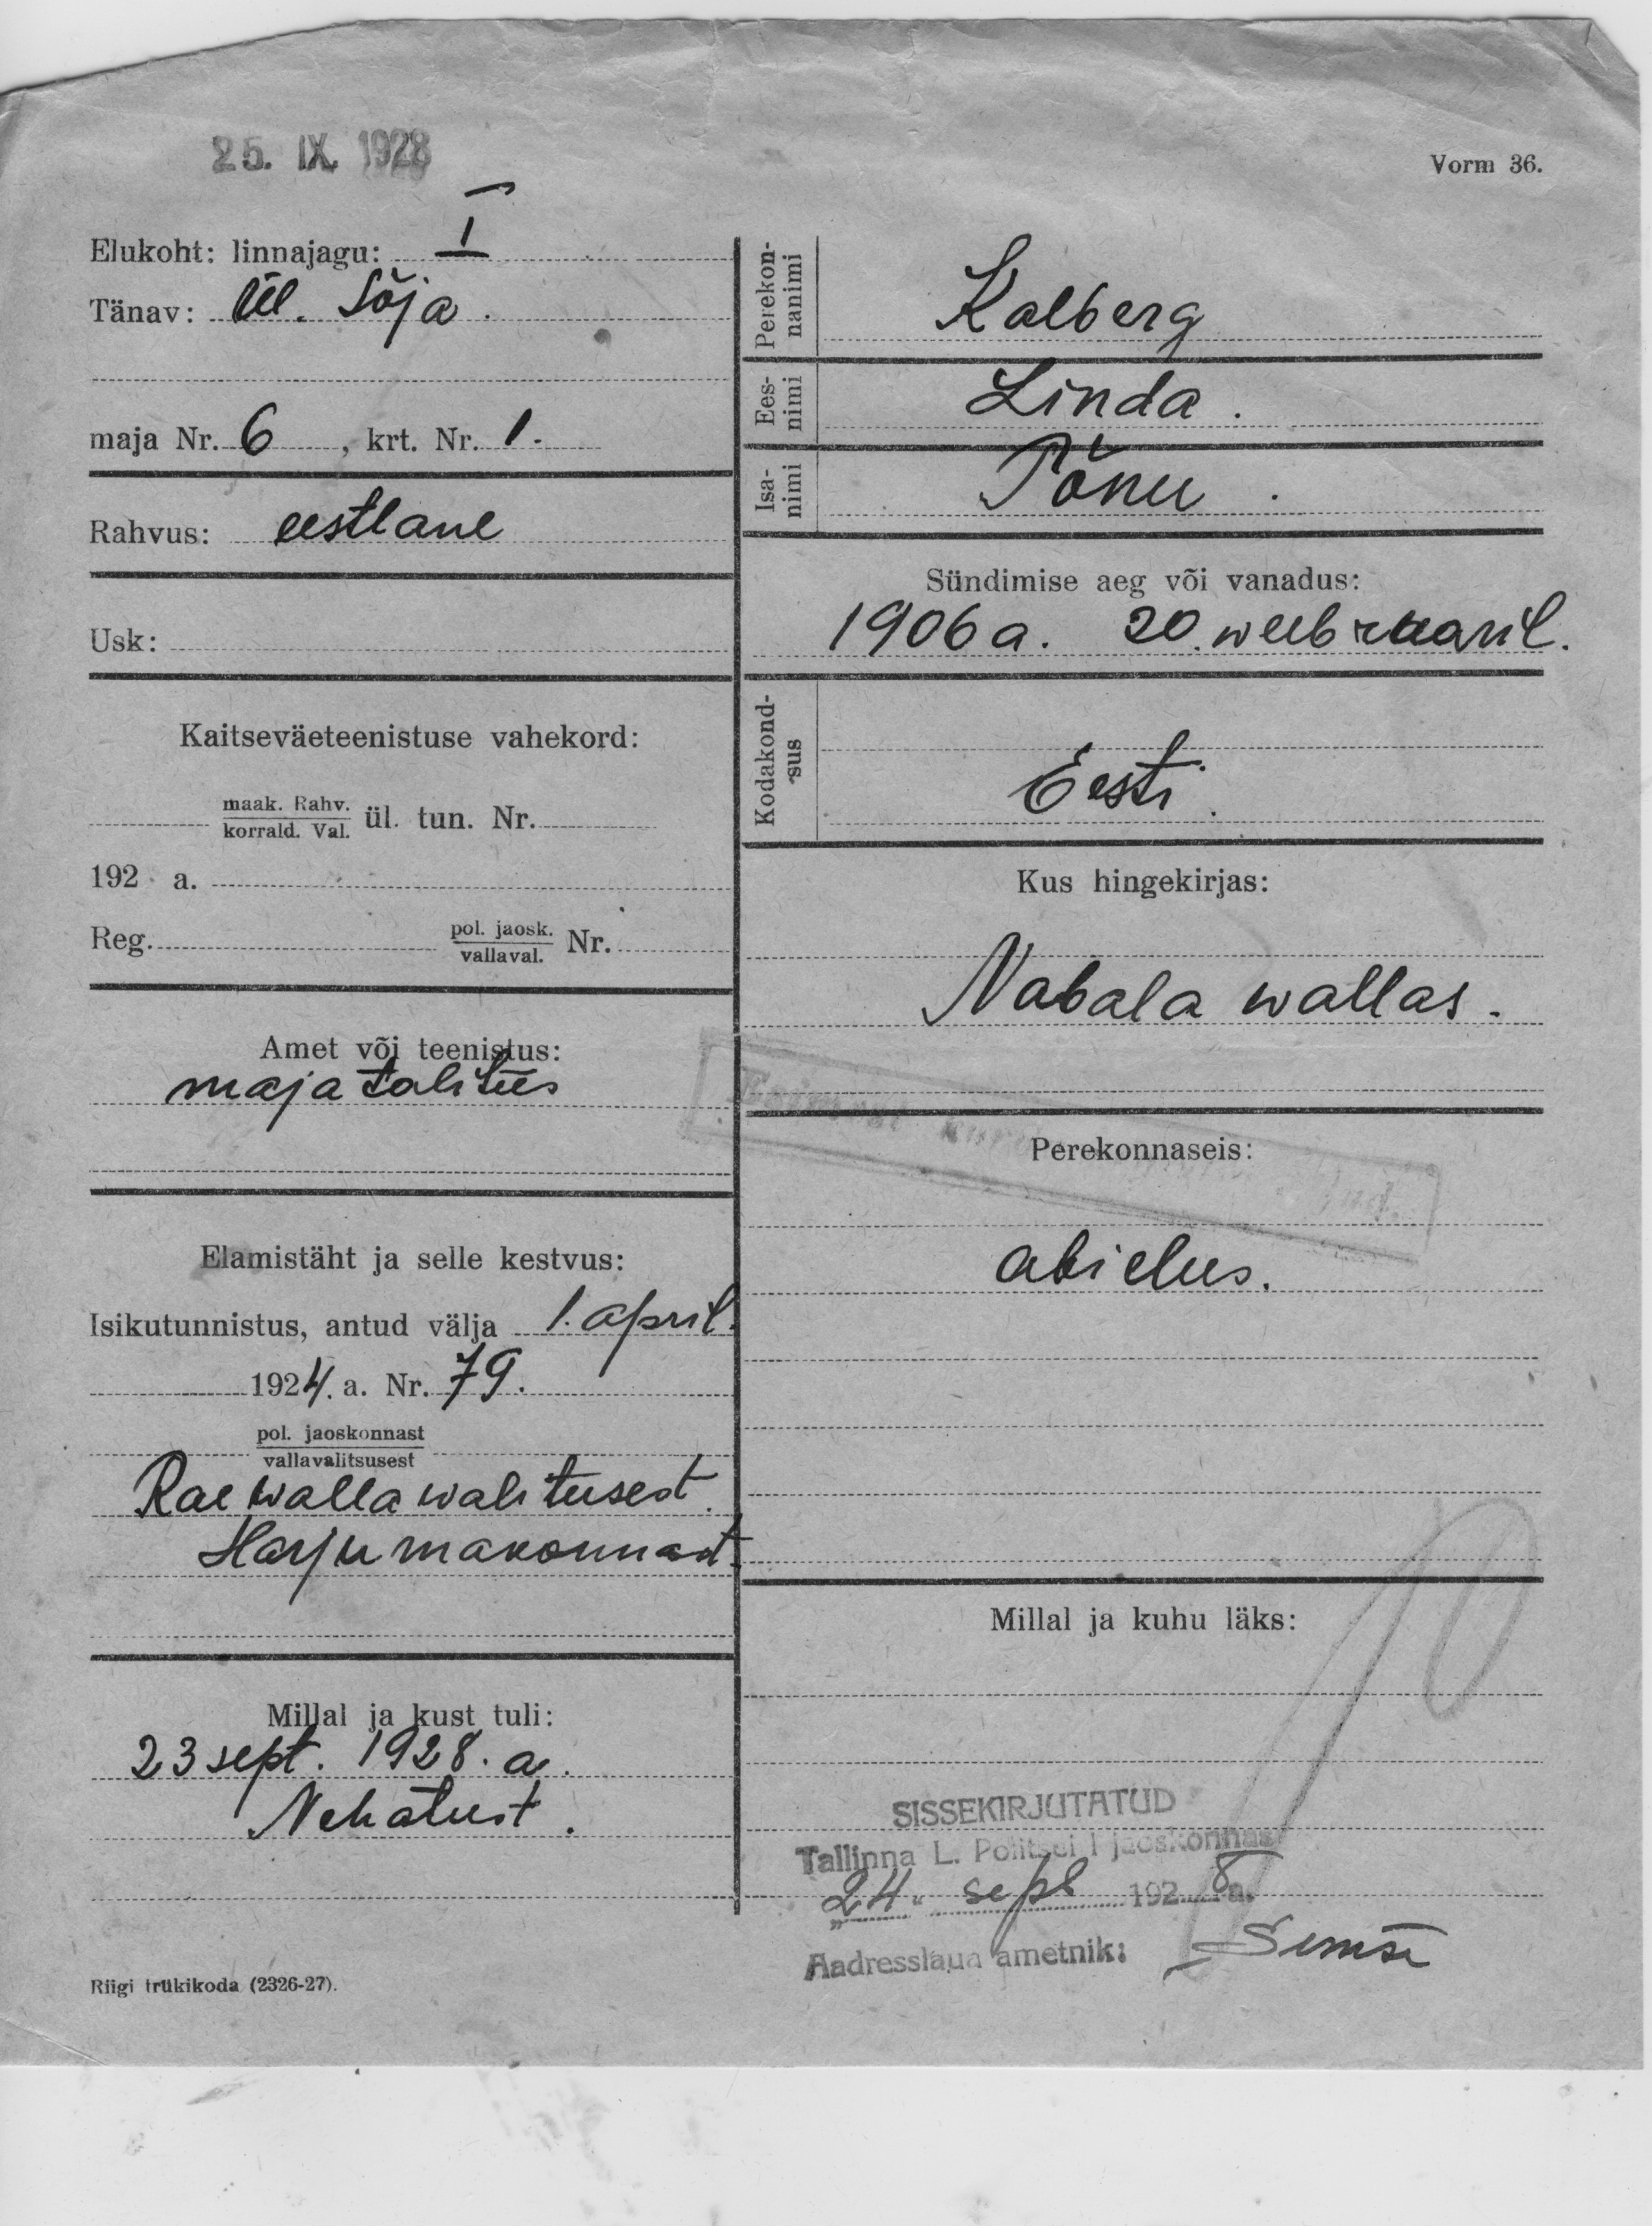 25. IX. 1928
Vorm 36.
Elukoht: linnajagu: I
Tänav: Ül. Sõja.
maja Nr. 6, krt. Nr. 1.
Rahvus: eestlane
Usk:
Kaitseväeteenistuse vahekord:
maak. Rahv.
korrald. Val. ül. tun. Nr.
192 a.
Reg. pol. jaosk.
vallaval. Nr.
Amet või teenistus:
majatalitus
Elamistäht ja selle kestvus:
Isikutunnistus, antud välja 1. april.
1924. a. Nr. 79.
pol. jaoskonnast
vallavalitsusest
Rae wallawalitusest.
Harjumakonnast
Millal ja kust tuli:
23 sept. 1928. a.
Nehatust.
Riigi trükikoda (2326-27).
Perekon-
nanimi
Kalberg
Ees-
nimi
Linda.
Isa-
nimi
Tõnu.
Sündimise aeg või vanadus:
1906 a. 20. weebruaril.
Kodakond-
sus
Eesti.
Kus hingekirjas:
Nabala wallas.
Perekonnaseis:
abielus.
Millal ja kuhu läks:
SISSEKIRJUTATUD
Tallinna L. Politsei I jaoskonnas
„24“ sept 1928 a.
Aadresslaua ametnik: